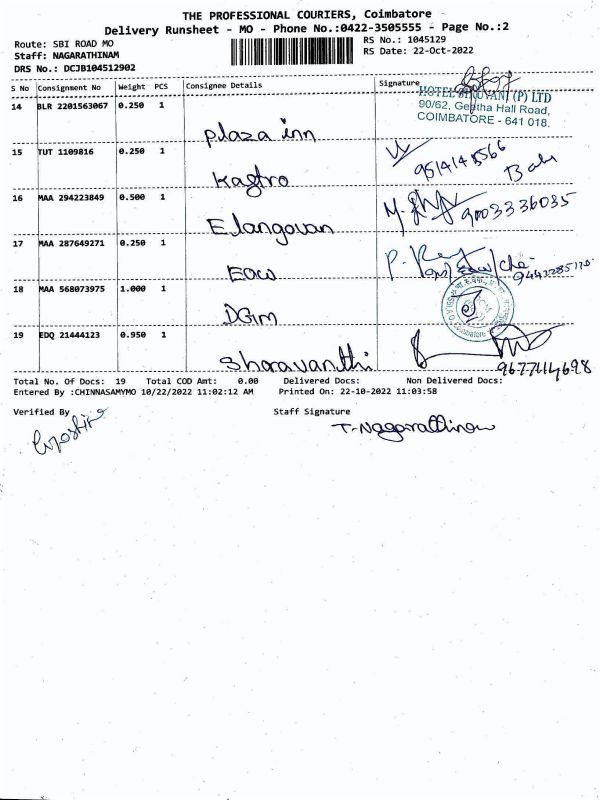 THE PROFESSIONAL COURIERS, Coimbatore
Delivery Runsheet - MO - Phone No.:0422-3505555 - Page No.:2
Route: SBI ROAD MO RS No.: 1045129
Staff: NAGARATHINAM RS Date: 22-Oct-2022
DRS No.: DCJB104512902
S No Consignment No Weight PCS Consignee Details Signature
14 BLR 2201563067 0.250 1
HOTEL (P) LTD
90/62, Geetha Hall Road,
COIMBATORE - 641 018.
Plaza inn
15 TUT 1109816 0.250 1
Kastro
16 MAA 294223849 0.500 1
Elangovan 9003336035
17 MAA 287649271 0.250 1
EOW
18 MAA 568073975 1.000 1
DGM
19 EDQ 21444123 0.950 1
Sharavanthi
Total No. Of Docs: 19 Total COD Amt: 0.00 Delivered Docs: Non Delivered Docs:
Entered By :CHINNASAMYMO 10/22/2022 11:02:12 AM Printed On: 22-10-2022 11:03:58
Verified By Staff Signature
T-Nagarathinam